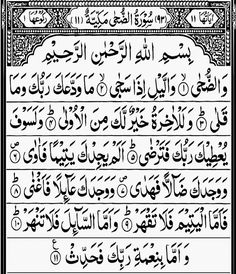 اٰیَاتُهَا ۱۱ (۹۳) سُوْرَةُ الضُّحٰى مَكِّيَّةٌ (۱۱) رُكُوْعُهَا ۱
بِسْمِ اللّٰهِ الرَّحْمٰنِ الرَّحِيْمِ
وَالضُّحٰى ۙ۱ وَالَّيْلِ اِذَا سَجٰى ۙ۲ مَا وَدَّعَكَ رَبُّكَ وَمَا
قَلٰى ؕ۳ وَلَلْاٰخِرَةُ خَيْرٌ لَّكَ مِنَ الْاُوْلٰى ؕ۴ وَلَسَوْفَ
يُعْطِيْكَ رَبُّكَ فَتَرْضٰى ؕ۵ اَلَمْ يَجِدْكَ يَتِيْمًا فَاٰوٰى ۪۶
وَوَجَدَكَ ضَآلًّا فَهَدٰى ۪۷ وَوَجَدَكَ عَآئِلًا فَاَغْنٰى ؕ۸
فَاَمَّا الْيَتِيْمَ فَلَا تَقْهَرْ ؕ۹ وَاَمَّا السَّآئِلَ فَلَا تَنْهَرْ ؕ۱۰
وَاَمَّا بِنِعْمَةِ رَبِّكَ فَحَدِّثْ ۱۱ ع